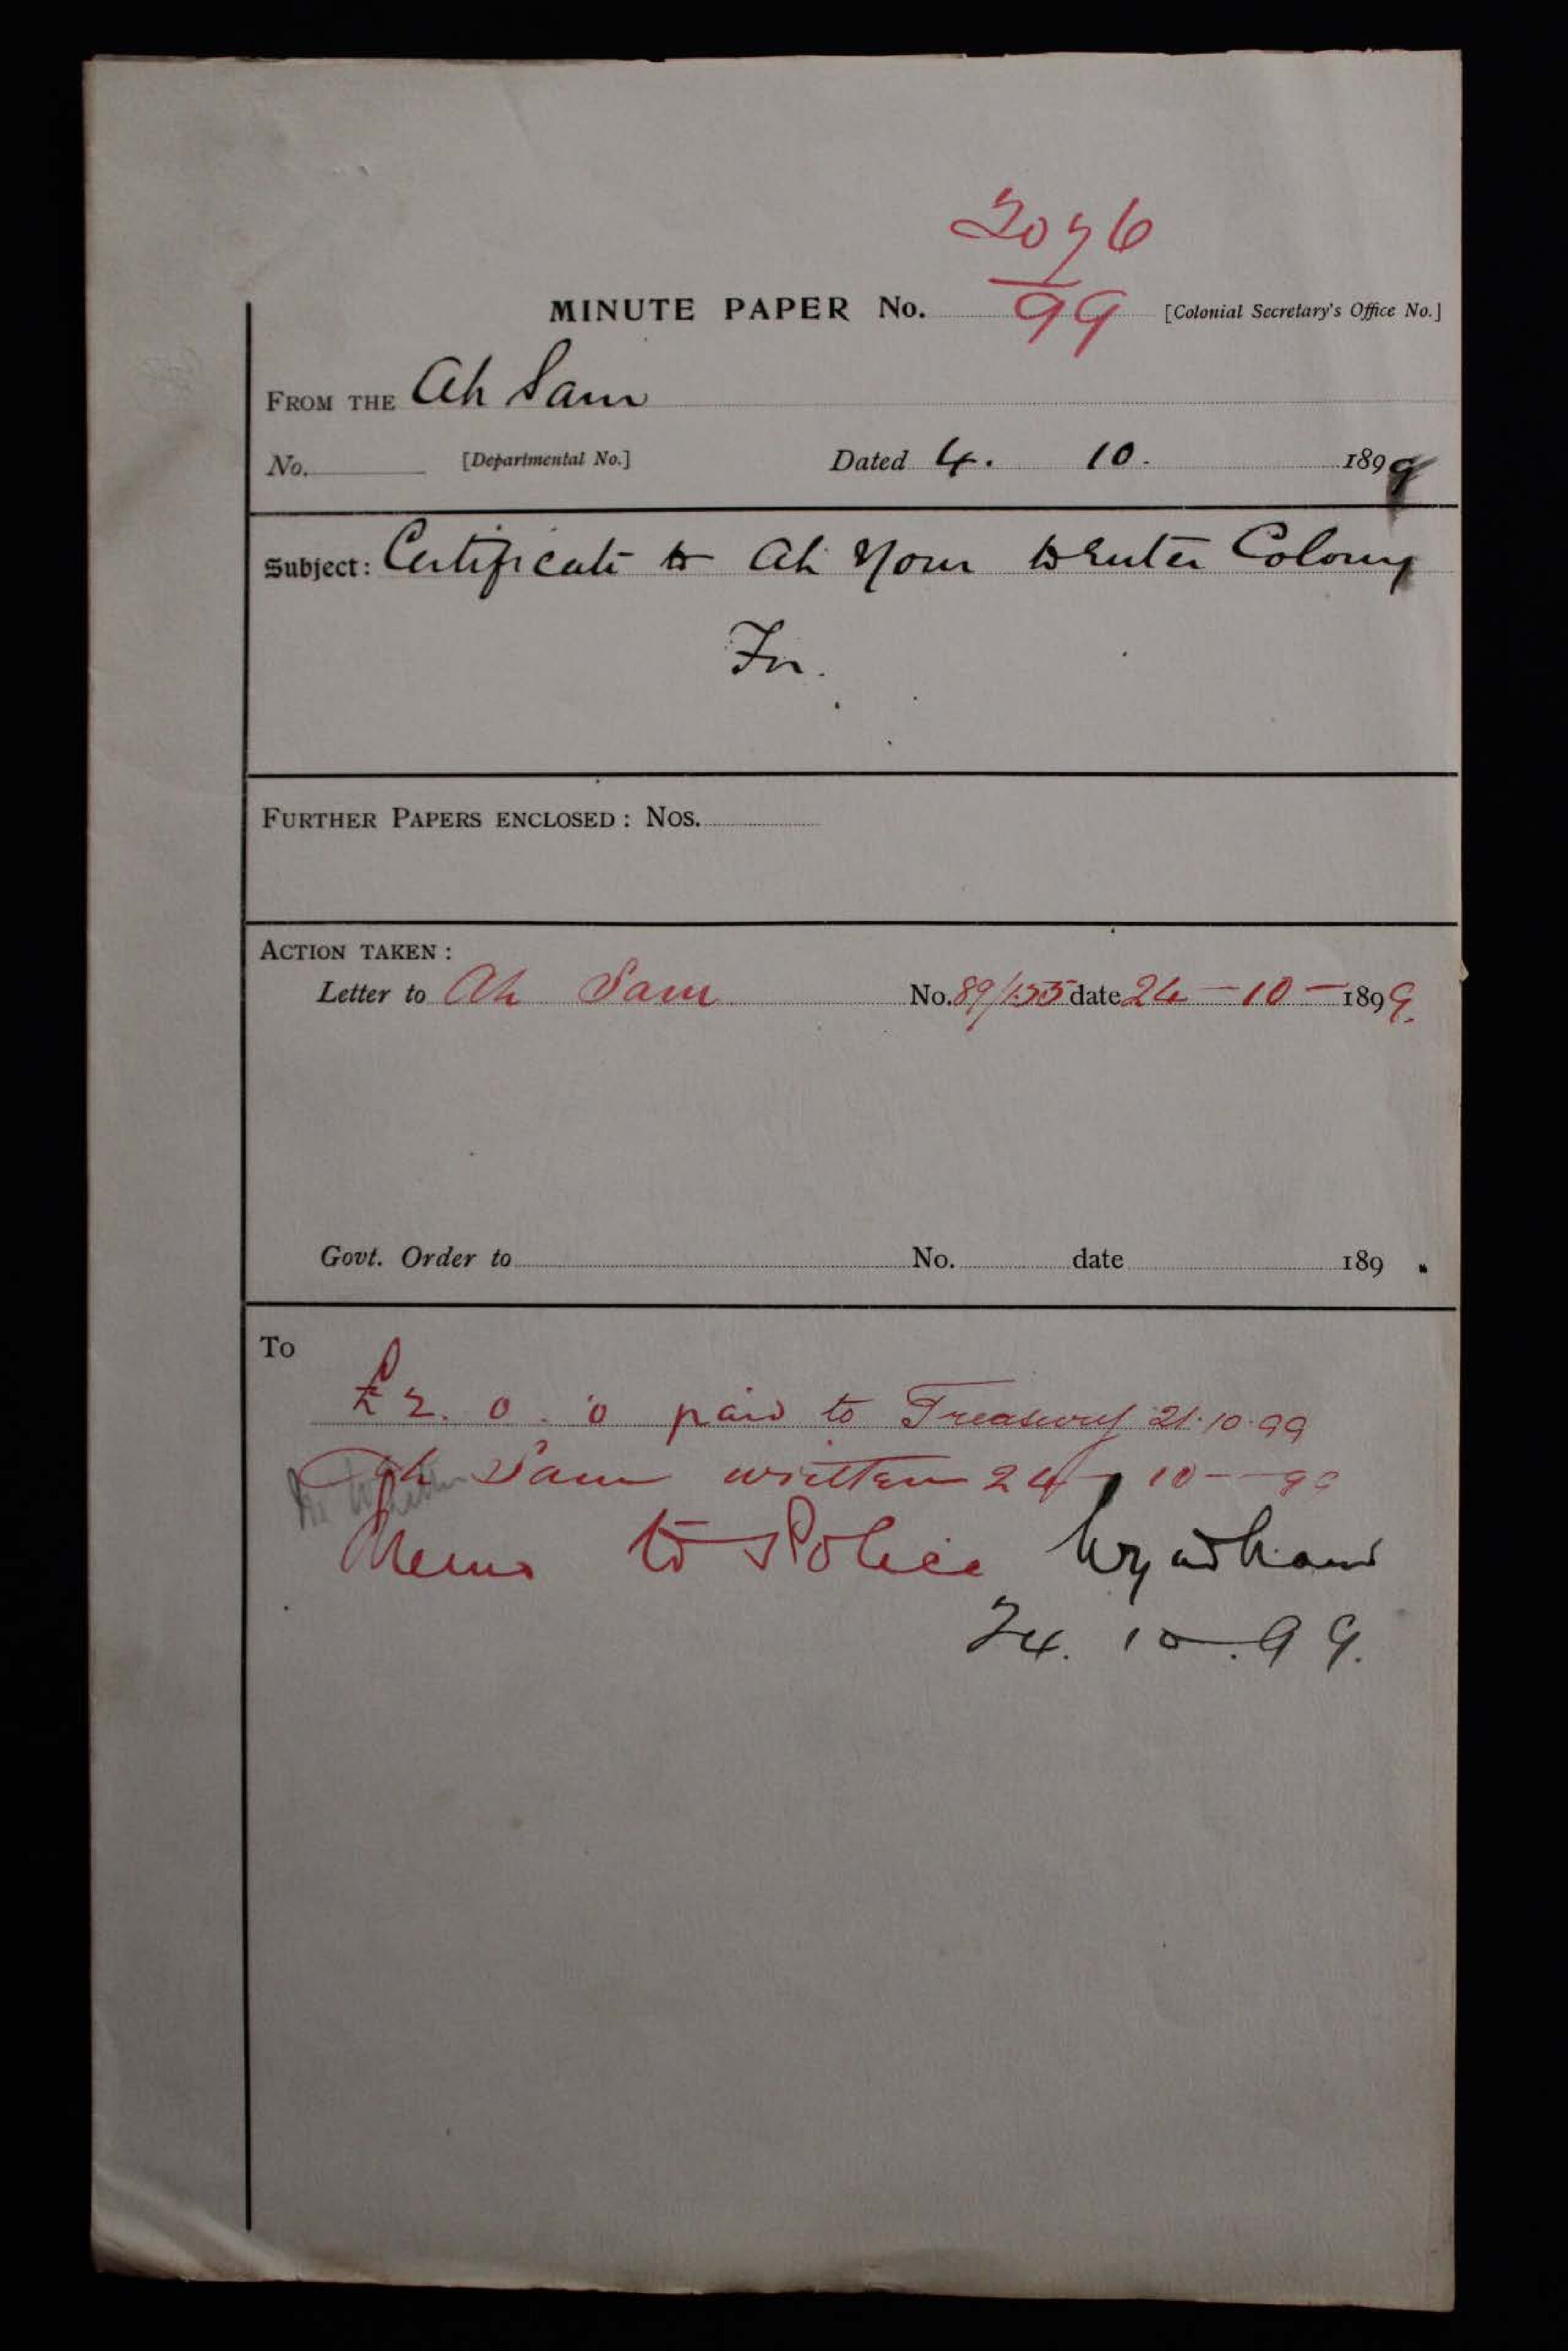 2076
99
MINUTE PAPER No. [Colonial Secretary's Office No.]
FROM THE Ah Sam
No. [Departmental No.] Dated 4. 10. 1899
Subject: Certificate to Ah You to Enter Colony
For.
FURTHER PAPERS ENCLOSED : NOS.
ACTION TAKEN :
Letter to Ah Sam No. 89/155 date 24 - 10 - 1899.
Govt. Order to No. date 189 .
To
£2. 0. 0 paid to Treasury 21.10.99
Ah Sam written 24 10 - 99
Memo to Police Wyndham
24. 10. 99.